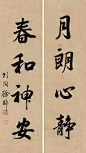 月朗心静
春和神安